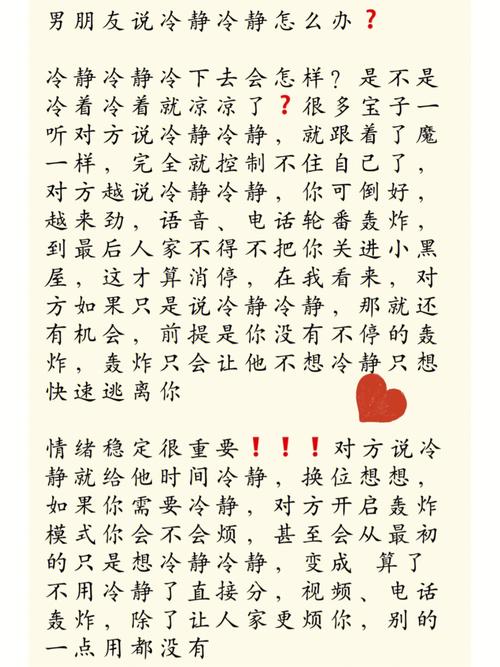 男朋友说冷静冷静怎么办❓
冷静冷静冷下去会怎样？是不是
冷着冷着就凉凉了❓很多宝子一
听对方说冷静冷静，就跟着了魔
一样，完全就控制不住自己了，
对方越说冷静冷静，你可倒好，
越来劲，语音、电话轮番轰炸，
到最后人家不得不把你关进小黑
屋，这才算消停，在我看来，对
方如果只是说冷静冷静，那就还
有机会，前提是你没有不停的轰
炸，轰炸只会让他不想冷静只想
快速逃离你
情绪稳定很重要❗❗❗对方说冷
静就给他时间冷静，换位想想，
如果你需要冷静，对方开启轰炸
模式你会不会烦，甚至会从最初
的只是想冷静冷静，变成 算了
不用冷静了直接分，视频、电话
轰炸，除了让人家更烦你，别的
一点用都没有